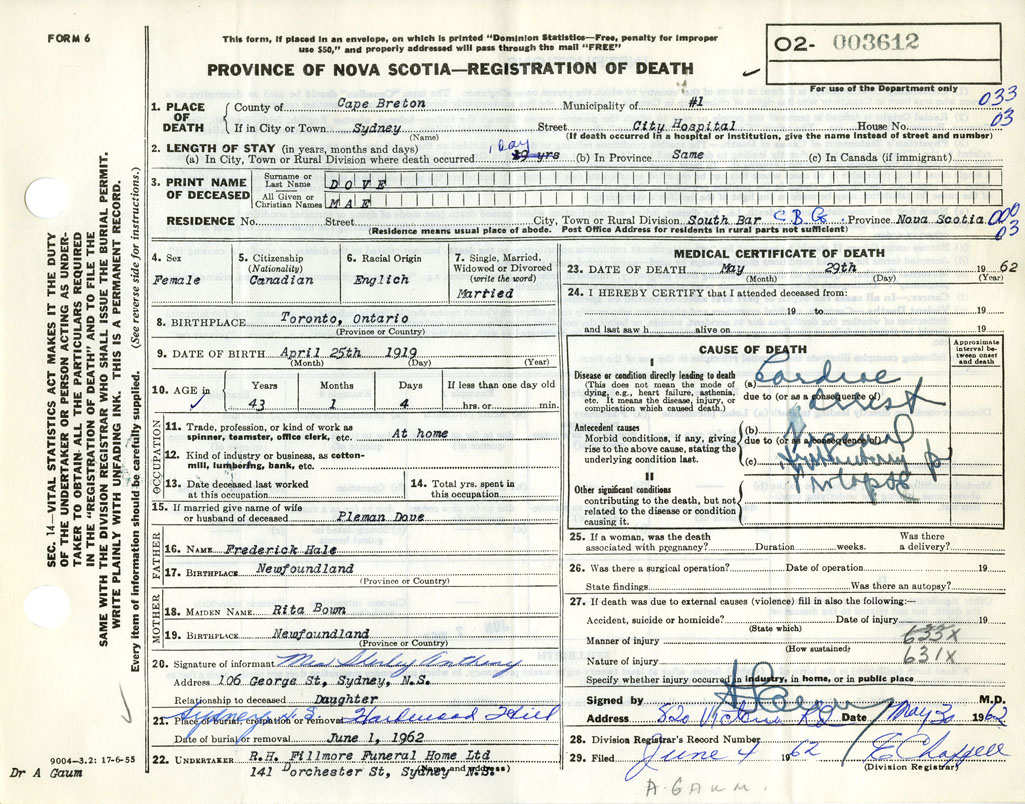 FORM 6
This form, if placed in an envelope, on which is printed "Dominion Statistics—Free, penalty for improper
use $50," and properly addressed will pass through the mail "FREE"
PROVINCE OF NOVA SCOTIA—REGISTRATION OF DEATH
02- 003612
For use of the Department only
033
03
1. PLACE OF DEATH
County of Cape Breton Municipality of #1
If in City or Town Sydney Street City Hospital House No.
(Name) (If death occurred in a hospital or institution, give the name instead of street and number)
2. LENGTH OF STAY (in years, months and days)
1 day
(a) In City, Town or Rural Division where death occurred 19 yrs (b) In Province Same (c) In Canada (if immigrant)
3. PRINT NAME OF DECEASED
Surname or Last Name DOVE
All Given or Christian Names MAE
RESIDENCE No. Street City, Town or Rural Division South Bar C.B. Co. Province Nova Scotia 000
03
(Residence means usual place of abode. Post Office Address for residents in rural parts not sufficient)
4. Sex
Female
5. Citizenship
(Nationality)
Canadian
6. Racial Origin
Englich
7. Single, Married,
Widowed or Divorced
(write the word)
Martied
8. BIRTHPLACE Toronto, Ontario
(Province or Country)
9. DATE OF BIRTH April 25th 1919
(Month) (Day) (Year)
10. AGE in Years Months Days If less than one day old
43 1 4 hrs. or min.
OCCUPATION
11. Trade, profession, or kind of work as
spinner, teamster, office clerk, etc. At home
12. Kind of industry or business, as cotton-
mill, lumbering, bank, etc.
13. Date deceased last worked
at this occupation
14. Total yrs. spent in
this occupation
15. If married give name of wife
or husband of deceased Pleman Dove
FATHER
16. NAME Frederick Hale
17. BIRTHPLACE Newfoundland
(Province or Country)
MOTHER
18. MAIDEN NAME Rita Bown
19. BIRTHPLACE Newfoundland
(Province or Country)
20. Signature of informant Mrs Shirley Anthony
Address 106 George St, Sydney, N.S.
Relationship to deceased Daughter
21. Place of burial, cremation or removal Sydney N.S. Hardwood Hill
Date of burial or removal June 1, 1962
22. UNDERTAKER R.H. Fillmore Funeral Home Ltd
141 Dorchester St, Sydney N.S.
(Name and address)
MEDICAL CERTIFICATE OF DEATH
23. DATE OF DEATH May 29th 19 62
(Month) (Day) (Year)
24. I HEREBY CERTIFY that I attended deceased from:
19 to 19
and last saw h alive on 19
CAUSE OF DEATH
Approximate
interval be-
tween onset
and death
I
Disease or condition directly leading to death
(This does not mean the mode of
dying, e.g., heart failure, asthenia,
etc. It means the disease, injury, or
complication which caused death.)
(a) Cardiac
due to (or as a consequence of)
arrest
Antecedent causes
Morbid conditions, if any, giving
rise to the above cause, stating the
underlying condition last.
(b)
due to (or as a consequence of)
(c)
II
Other significant conditions
contributing to the death, but not
related to the disease or condition
causing it.
Prolapse
25. If a woman, was the death
associated with pregnancy? Duration weeks.
Was there
a delivery?
26. Was there a surgical operation? Date of operation 19
State findings Was there an autopsy?
27. If death was due to external causes (violence) fill in also the following:—
Accident, suicide or homicide? Date of injury 19
(State which)
Manner of injury 633X
(How sustained)
Nature of injury 631X
Specify whether injury occurred in industry, in home, or in public place
Signed by M.D.
Address 520 Victoria Rd Date May 30 1962
28. Division Registrar's Record Number
29. Filed June 4 1962 E Chappell
(Division Registrar)
A. GAUM.
SEC. 14—VITAL STATISTICS ACT MAKES IT THE DUTY
OF THE UNDERTAKER OR PERSON ACTING AS UNDER-
TAKER TO OBTAIN ALL THE PARTICULARS REQUIRED
IN THE "REGISTRATION OF DEATH" AND TO FILE THE
SAME WITH THE DIVISION REGISTRAR WHO SHALL ISSUE THE BURIAL PERMIT.
WRITE PLAINLY WITH UNFADING INK. THIS IS A PERMANENT RECORD.
Every item of information should be carefully supplied. (See reverse side for instructions.)
9004—3.2: 17-6-55
Dr A Gaum